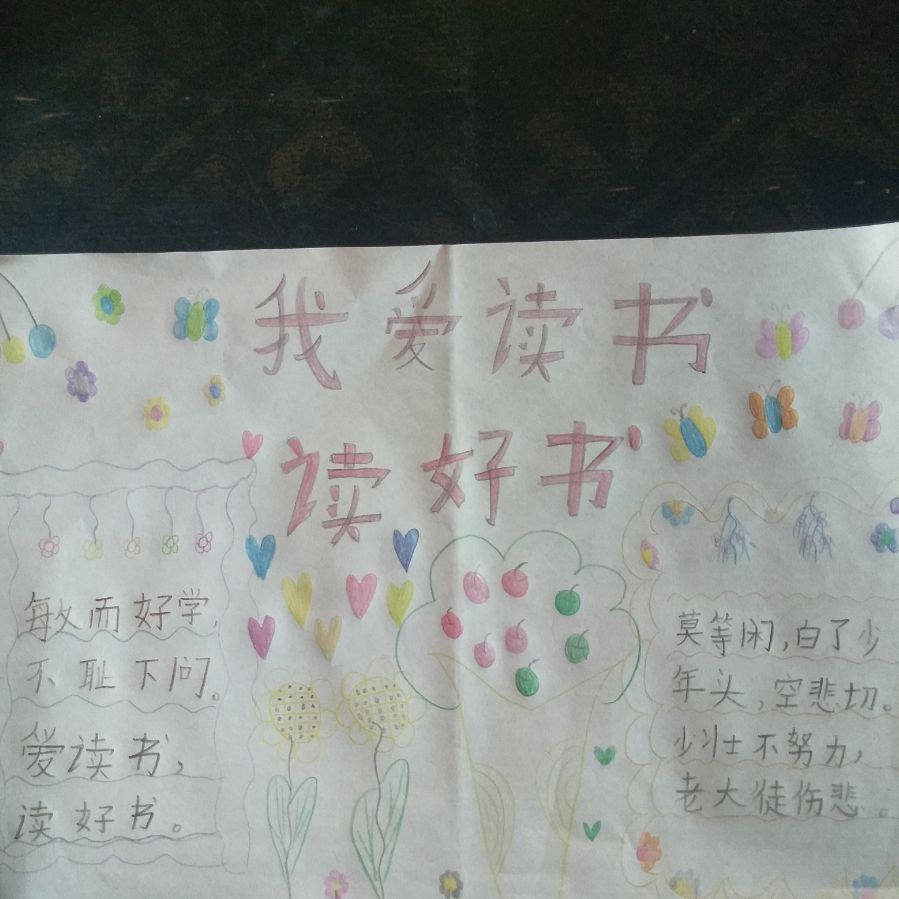 我爱读书
读好书
敏而好学,
不耻下问。
爱读书,
读好书。
莫等闲,白了少
年头,空悲切。
少壮士不努力,
老大徒伤悲。